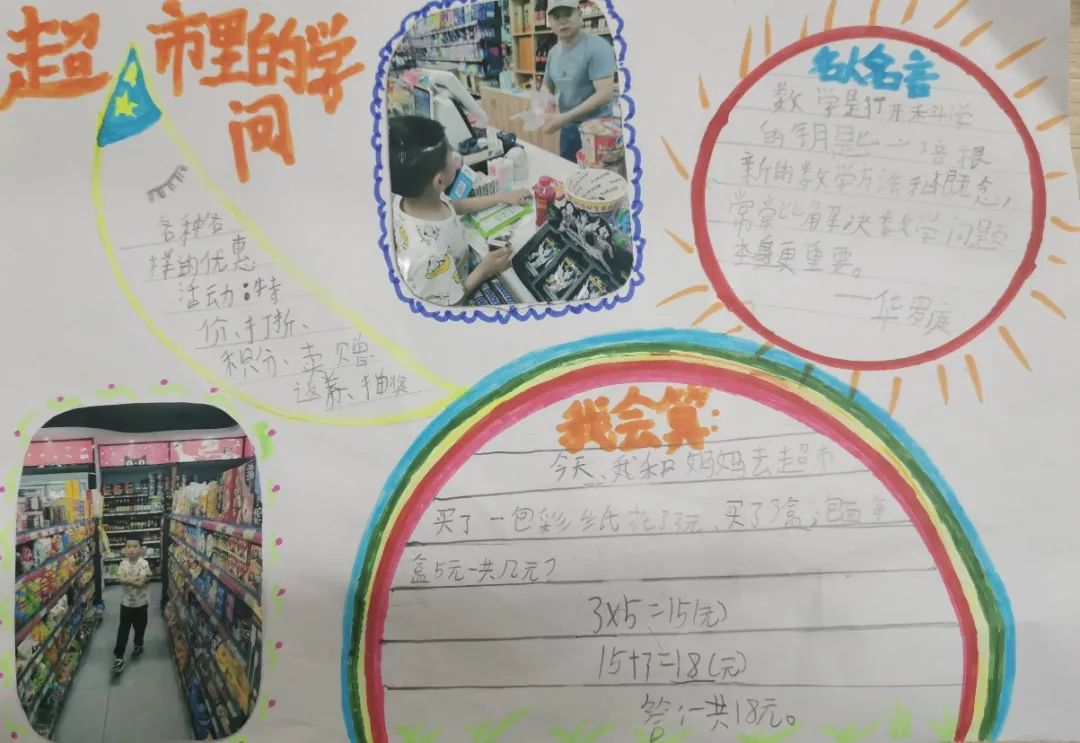 超市里的学
问
名人名言
数学是打开科学
的钥匙一培根
新的数学方法和概念,
常常比解决数学问题
本身更重要。
—华罗庚
各种各
样的优惠
活动:特
价、打折、
积分、卖赠
返券、抽奖
我会算:
今天、我和妈妈去超市
买了一包彩纸花了3元、买了3盒泡面每
盒5元一共几元?
3×5=15(元)
15+3=18(元)
答:一共18元。